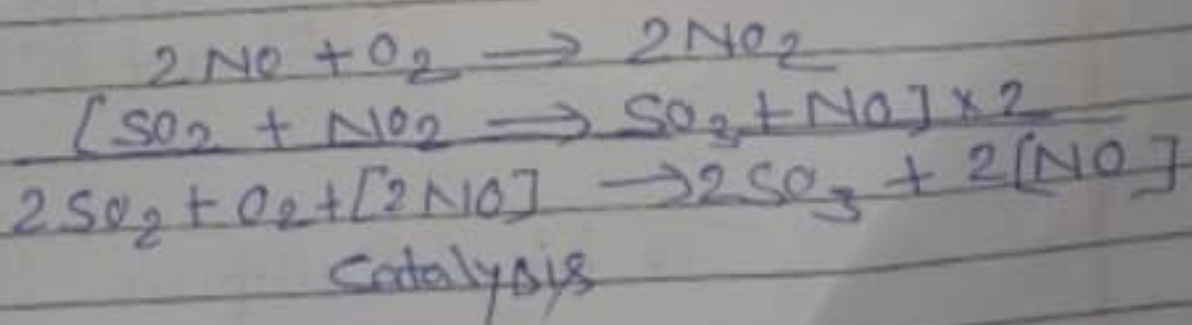 2NO + O₂ → 2NO₂
[SO₂ + NO₂ → SO₃ + NO] × 2
2SO₂ + O₂ + [2NO] → 2SO₃ + 2[NO]
Catalysis